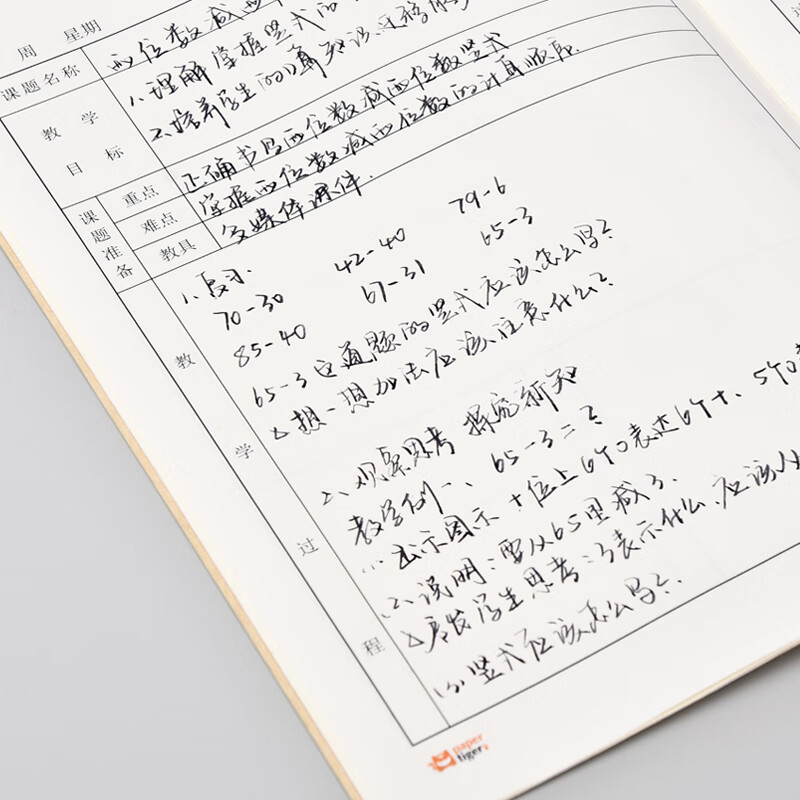 周 星期
课题名称 两位数减两
教学目标 1.理解掌握竖式的
2.培养学生的口算知识迁移能
课题准备 重点 正确书写两位数减两位数竖式
难点 掌握两位数减两位数的计算顺序.
教具 多媒体课件.
教学过程
1、复习.
70-30 42-40 79-6
85-40 67-31 65-3
65-3这道题的竖式应该怎么写?
△想一想加法应该注意什么?
2、观察思考 探究新知
教学例一、 65-3=?
(1) 出示图示 十位上6个0表达6个十、5个0表
(2) 说明:要从65里减了.
△启发学生思考:3表示什么,应该从
(3) 竖式应该怎么写?
paper
tiger